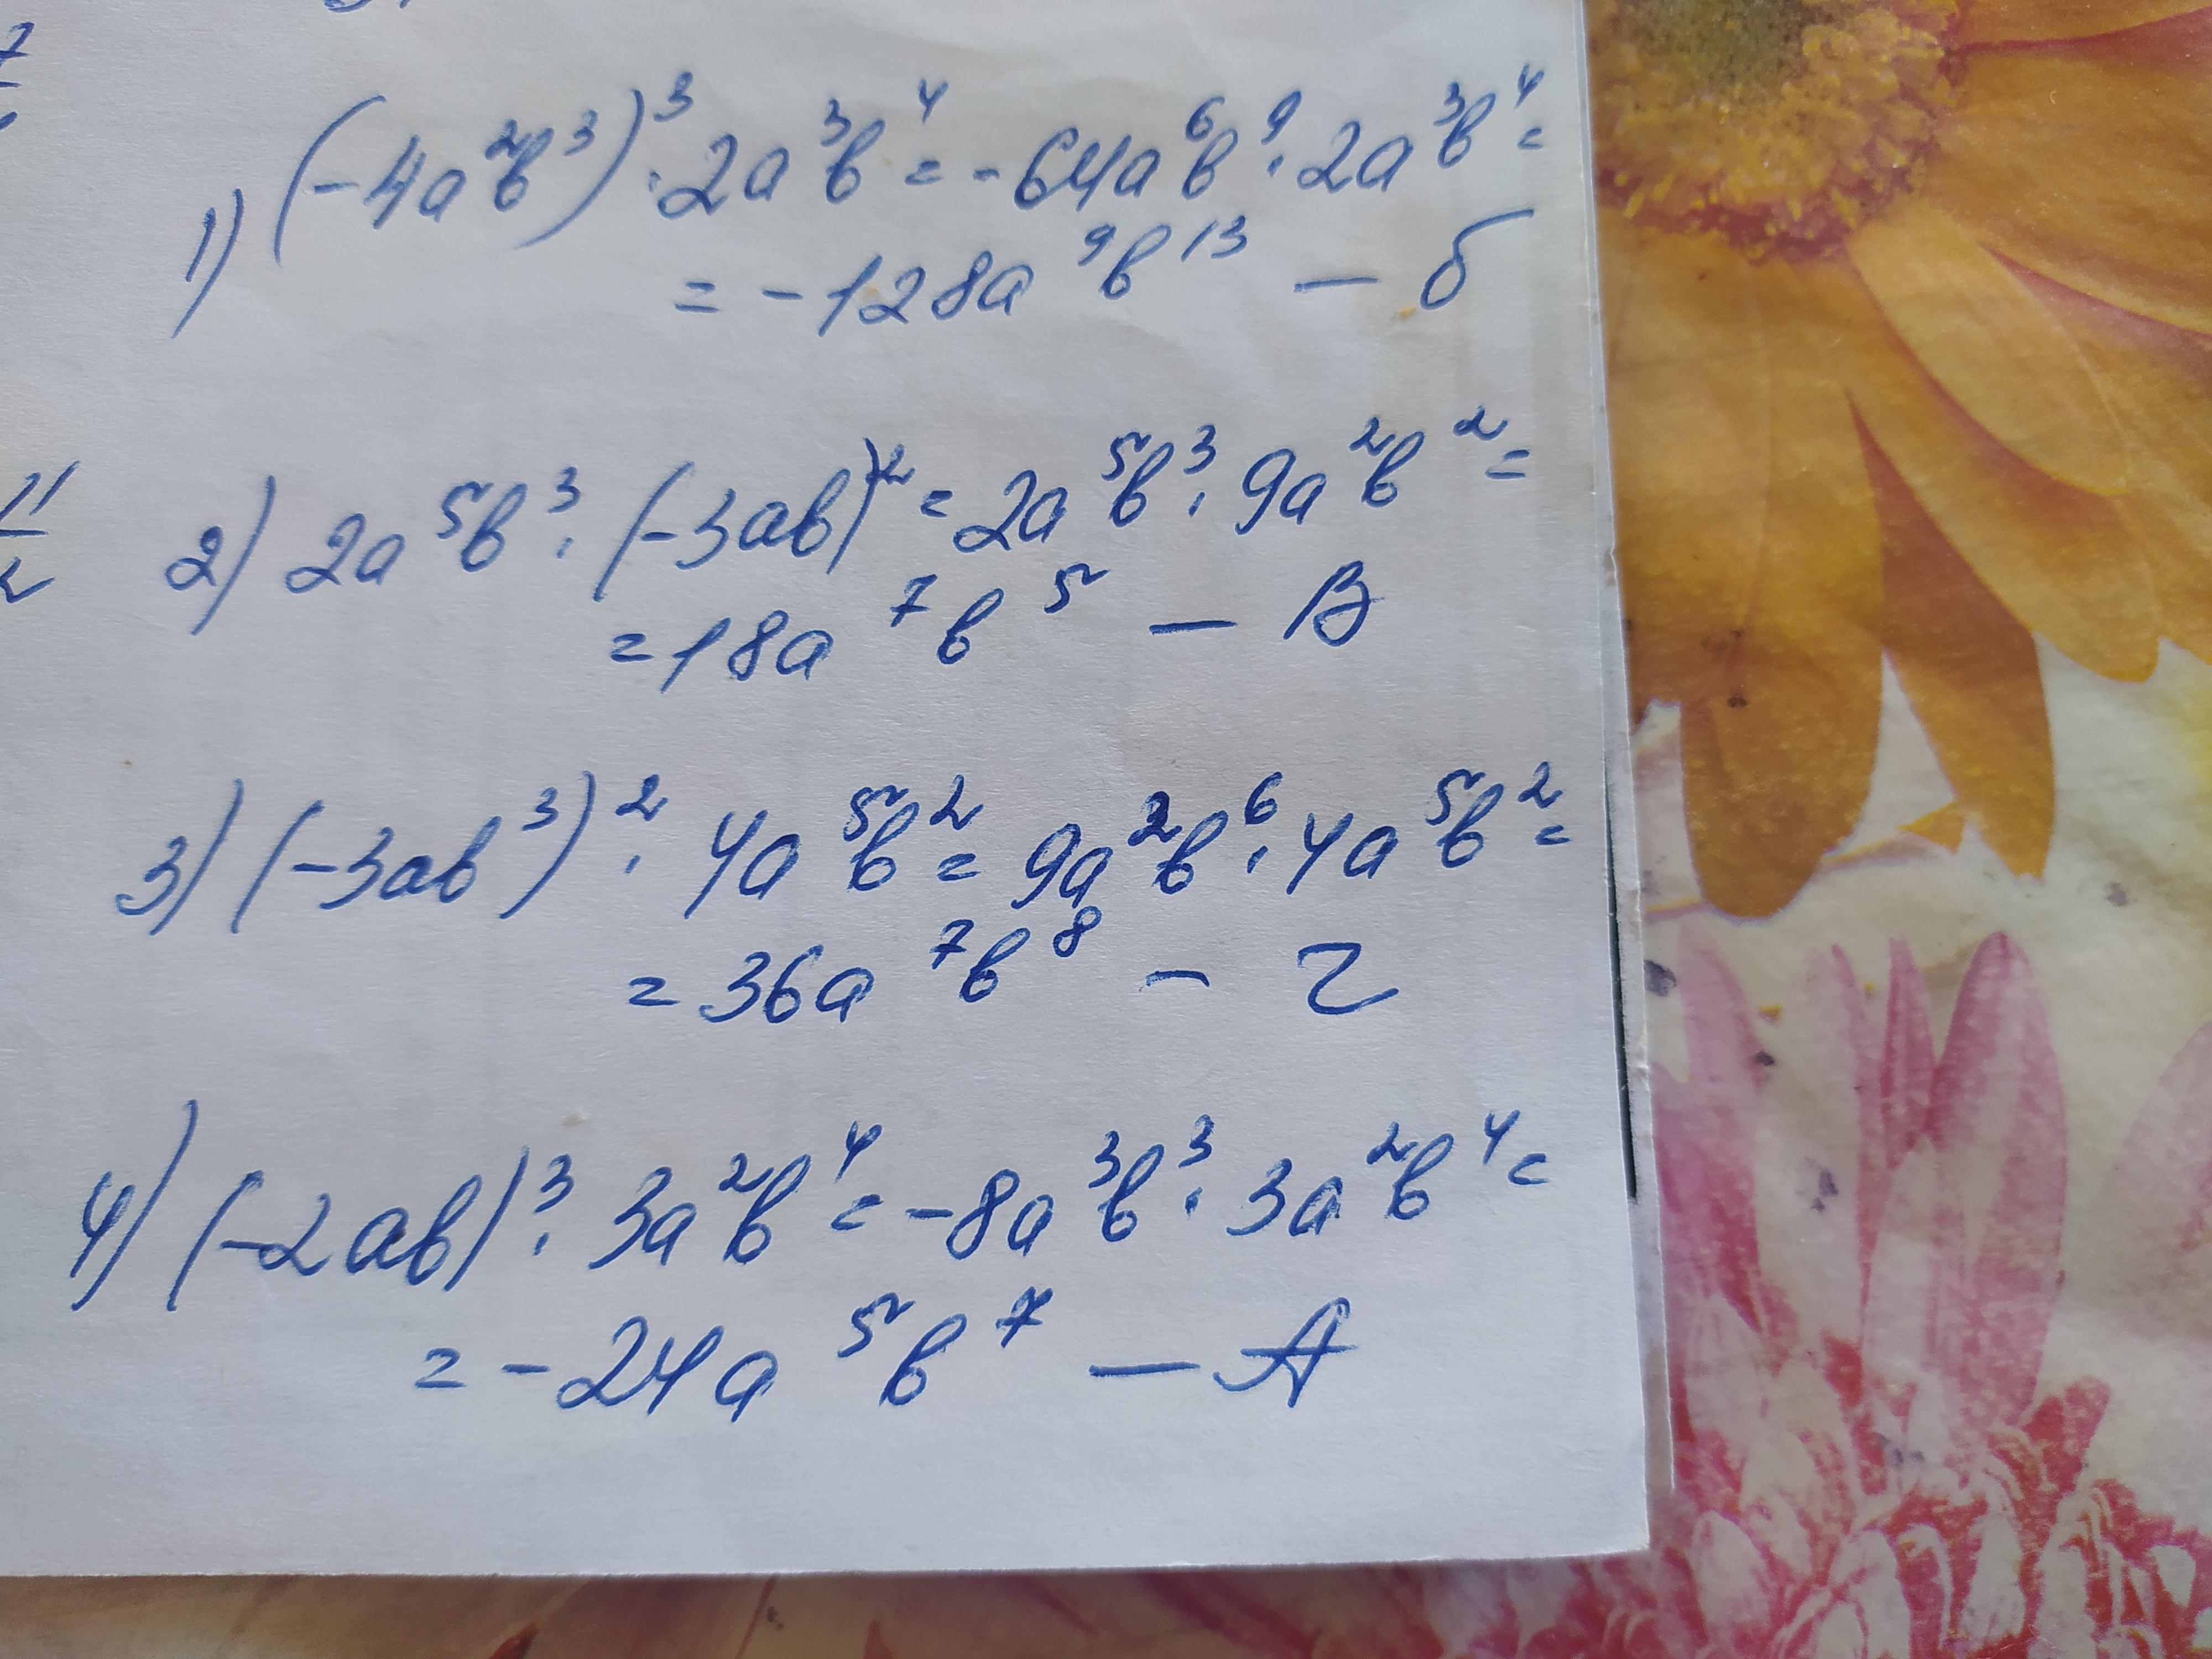 1) (-4a²b³)³ · 2a³b⁴ = -64a⁶b⁹ · 2a³b⁴ =
= -128a⁹b¹³ — б
2) 2a⁵b³ · (-3ab)² = 2a⁵b³ · 9a²b² =
= 18a⁷b⁵ — В
3) (-3ab³)² · 4a⁵b² = 9a²b⁶ · 4a⁵b² =
= 36a⁷b⁸ - г
4) (-2ab)³ · 3a²b⁴ = -8a³b³ · 3a²b⁴ =
= -24a⁵b⁷ — А